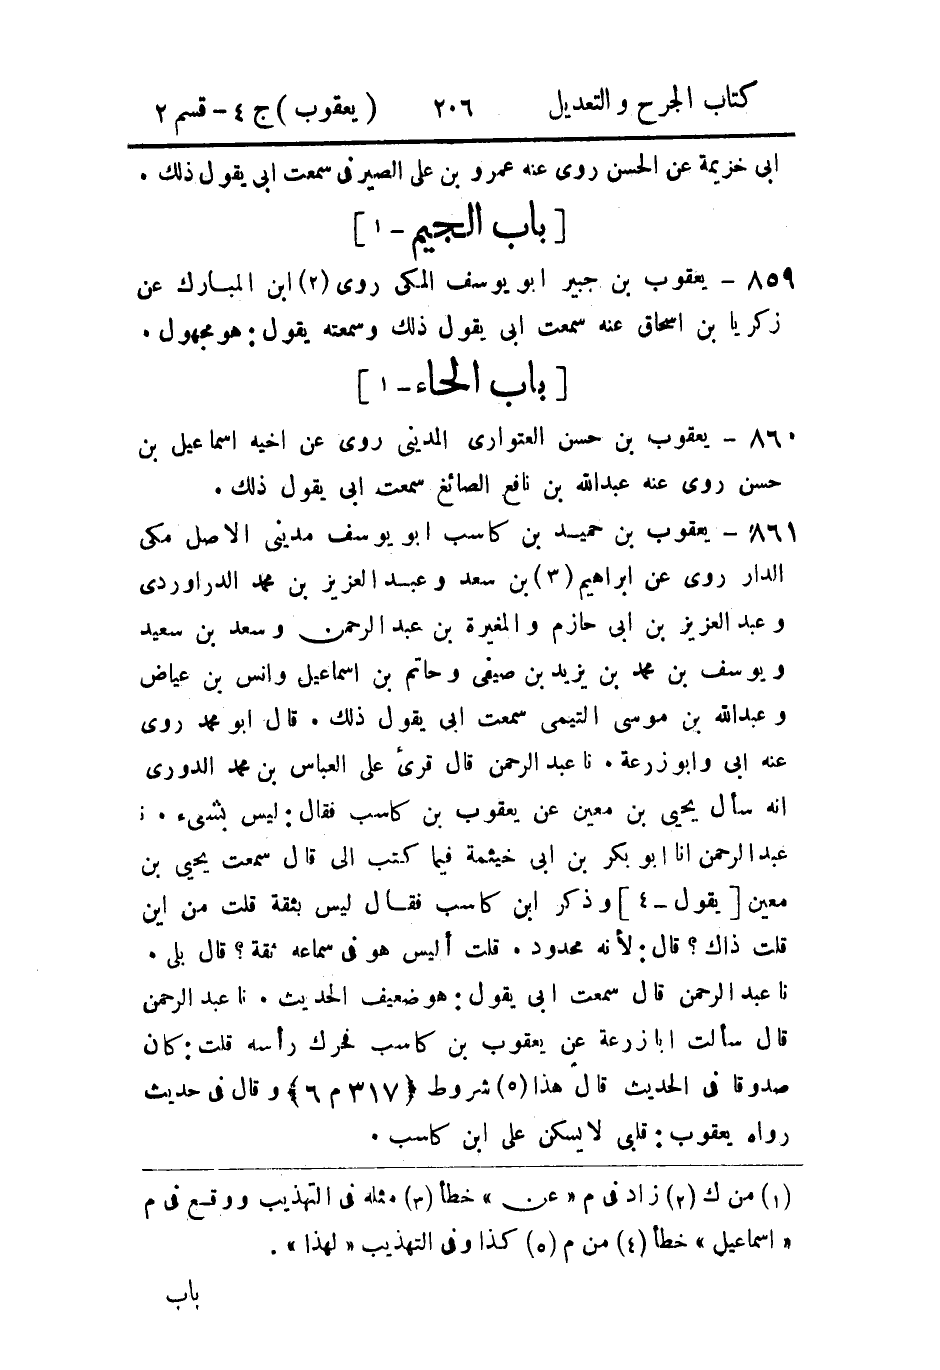 كتاب الجرح والتعديل ٢٠٦ (يعقوب) ج ٤ – قسم ٢
ابى خزيمة عن الحسن روى عنه عمرو بن على الصيرفى سمعت ابى يقول ذلك .
[باب الجيم – ١]
٨٥٩ – يعقوب بن جبير ابو يوسف المكى روى (٢) ابن المبارك عن
زكريا بن اسحاق عنه سمعت ابى يقول ذلك وسمعته يقول : هو مجهول .
[باب الحاء – ١]
٨٦٠ – يعقوب بن حسن العتوارى المدينى روى عن اخيه اسماعيل بن
حسن روى عنه عبدالله بن نافع الصائغ سمعت ابى يقول ذلك .
٨٦١ – يعقوب بن حميد بن كاسب ابو يوسف مدينى الاصل مكى
الدار روى عن ابراهيم (٣) بن سعد وعبد العزيز بن محمد الدراوردى
وعبد العزيز بن ابى حازم والمغيرة بن عبد الرحمن وسعد بن سعيد
ويوسف بن محمد بن يزيد بن صيفى وحاتم بن اسماعيل وانس بن عياض
وعبدالله بن موسى التيمى سمعت ابى يقول ذلك . قال ابو محمد روى
عنه ابى وابو زرعة . نا عبد الرحمن قال قرئ على العباس بن محمد الدورى
انه سأل يحيى بن معين عن يعقوب بن كاسب فقال : ليس بشىء . نا
عبد الرحمن انا ابو بكر بن ابى خيثمة فيما كتب الى قال سمعت يحيى بن
معين [يقول – ٤] وذكر ابن كاسب فقال ليس بثقة قلت من اين
قلت ذاك ؟ قال : لأنه محدود . قلت أليس هو فى سماعه ثقة ؟ قال بلى .
نا عبد الرحمن قال سمعت ابى يقول : هو ضعيف الحديث . نا عبد الرحمن
قال سألت ابا زرعة عن يعقوب بن كاسب فحرك رأسه قلت : كان
صدوقا فى الحديث قال هذا (٥) شروط {٣١٧ م ٦} وقال فى حديث
رواه يعقوب : قلبى لا يسكن على ابن كاسب .
(١) من ك (٢) زاد فى م «عن» خطأ (٣) مثله فى التهذيب ووقع فى م
«اسماعيل» خطأ (٤) من م (٥) كذا وفى التهذيب «لهذا» .
باب